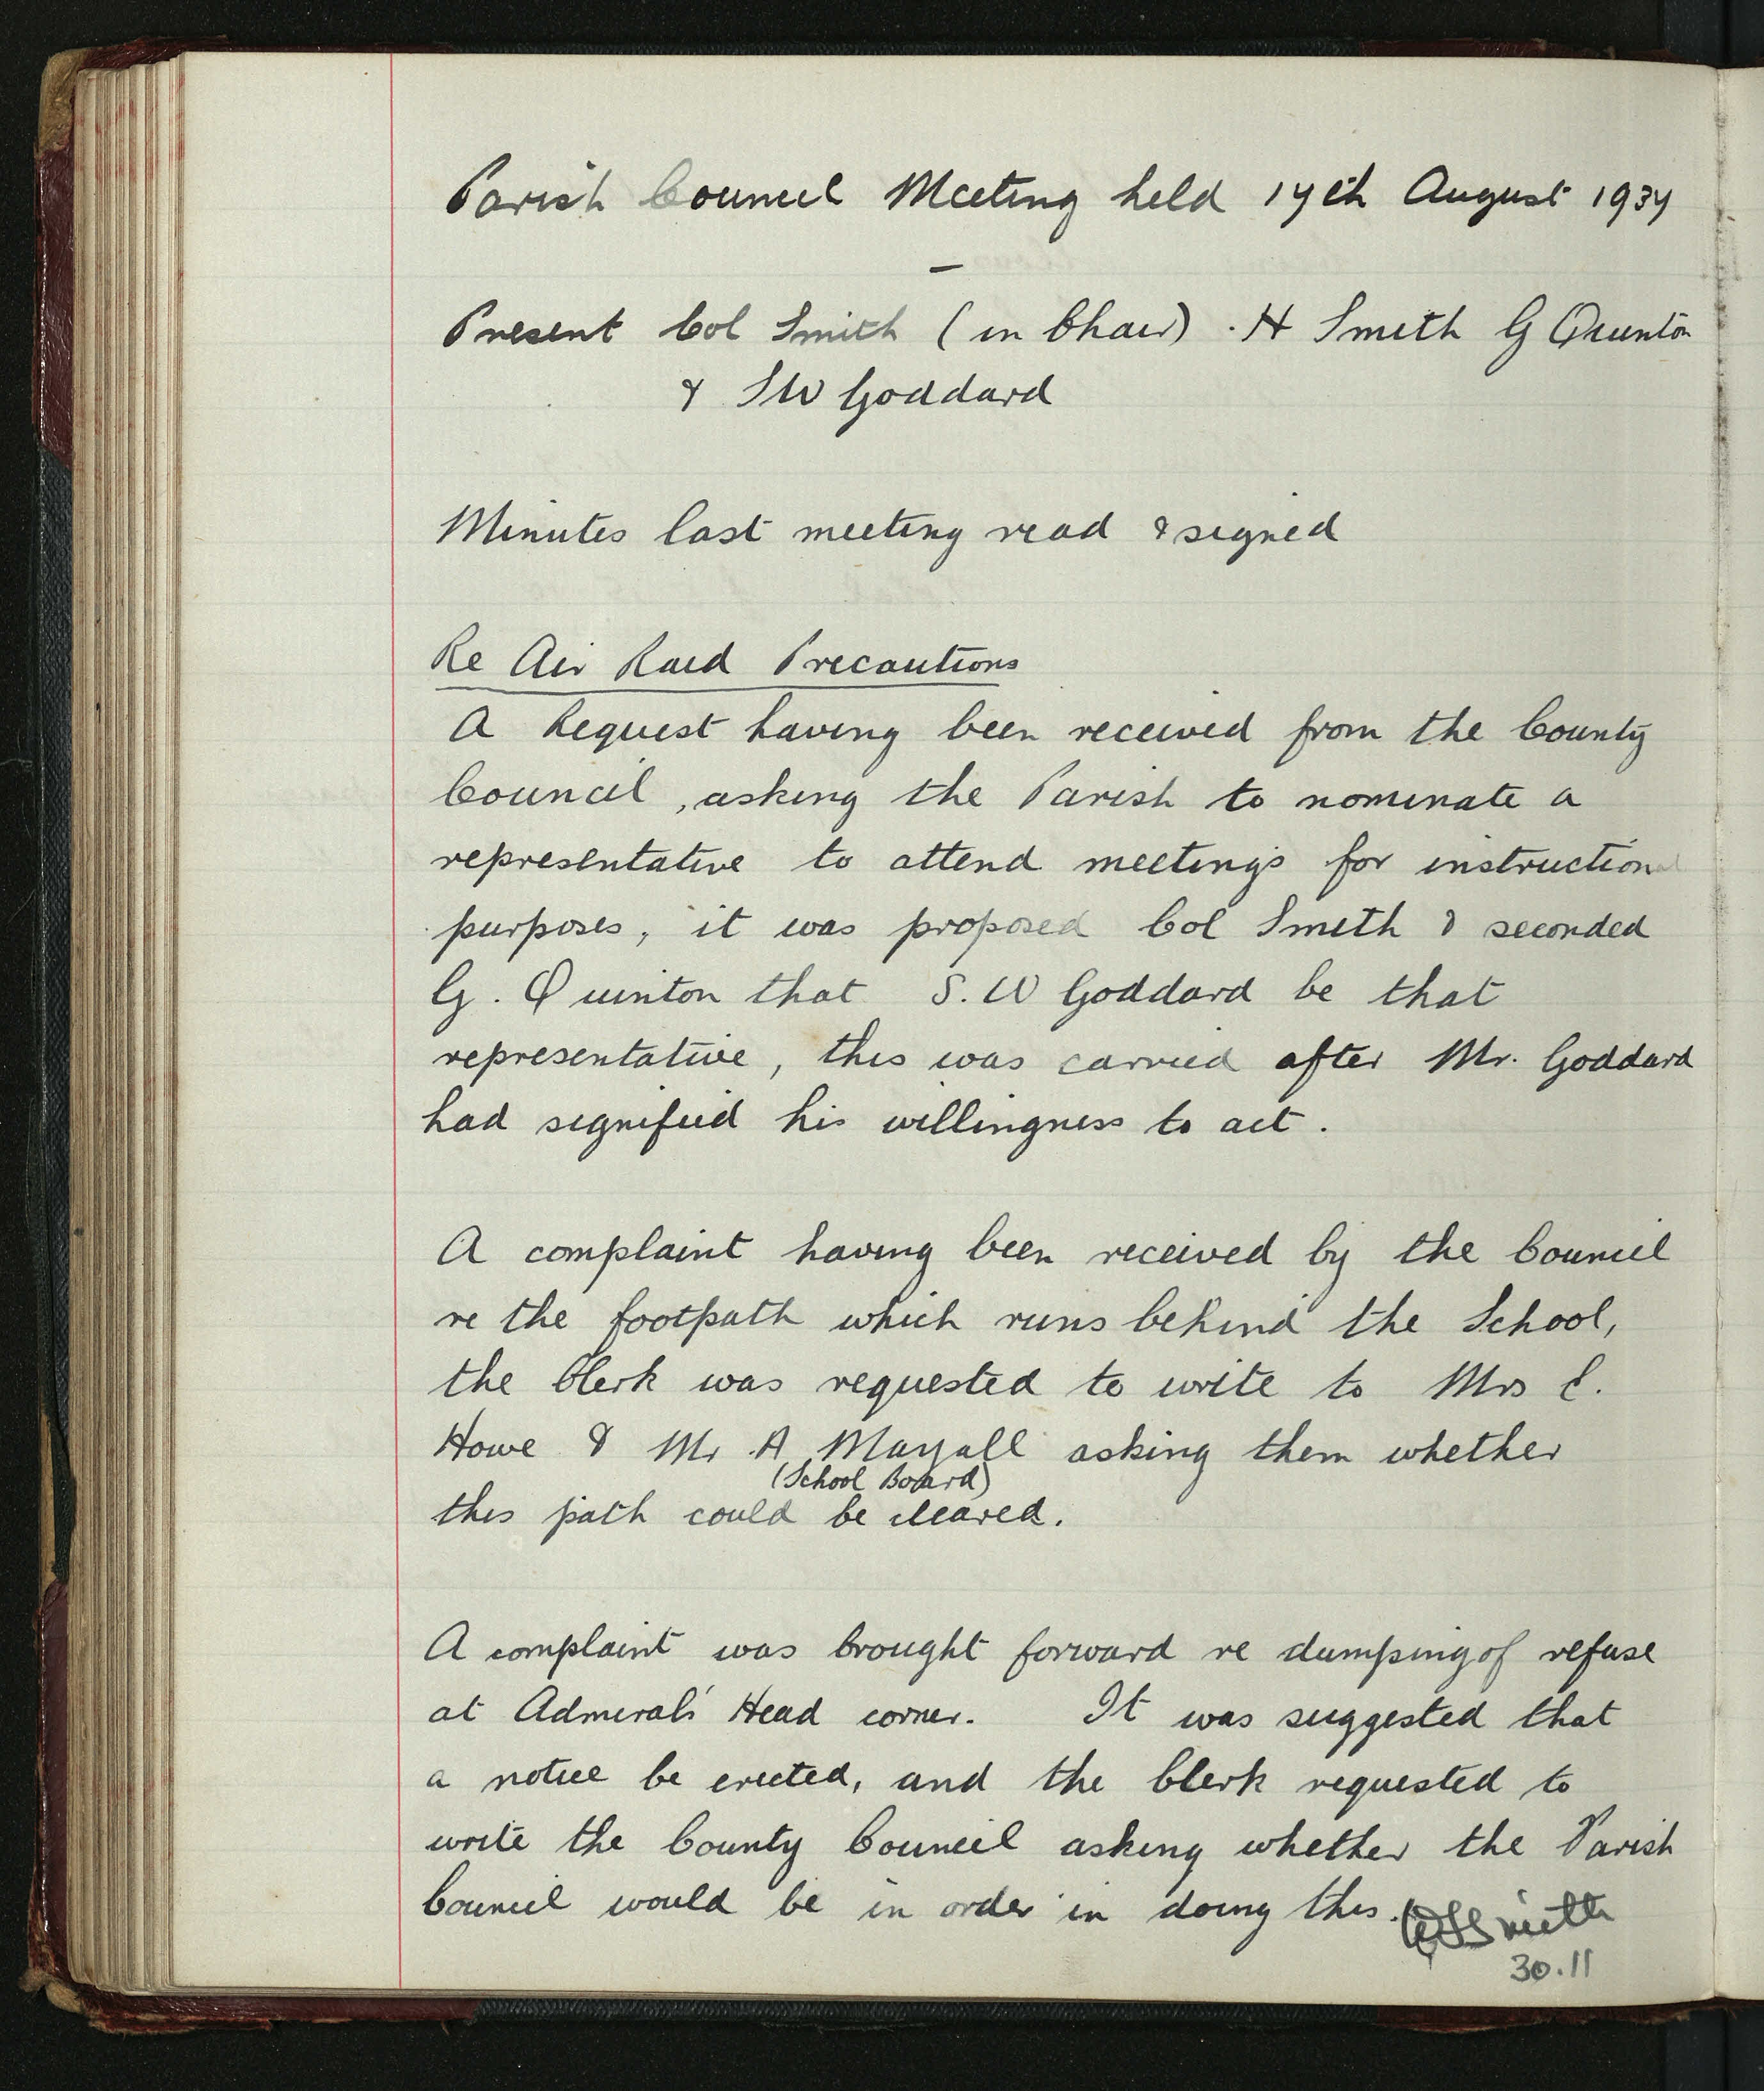 Parish Council Meeting held 17th August 1937
Present Col Smith (in Chair) . H Smith G Quinton
& S W Goddard
Minutes last meeting read & signed
Re Air Raid Precautions
A Request having been received from the County
Council, asking the Parish to nominate a
representative to attend meetings for instructional
purposes, it was proposed Col Smith & seconded
G. Quinton that S. W Goddard be that
representative, this was carried after Mr. Goddard
had signified his willingness to act.
A complaint having been received by the Council
re the footpath which runs behind the School,
the Clerk was requested to write to Mrs E.
Howe & Mr A Mayall asking them whether
(School Board)
this path could be cleared.
A complaint was brought forward re dumping of refuse
at Admirals' Head corner. It was suggested that
a notice be erected, and the Clerk requested to
write the County Council asking whether the Parish
Council would be in order in doing this. Smith
30.11